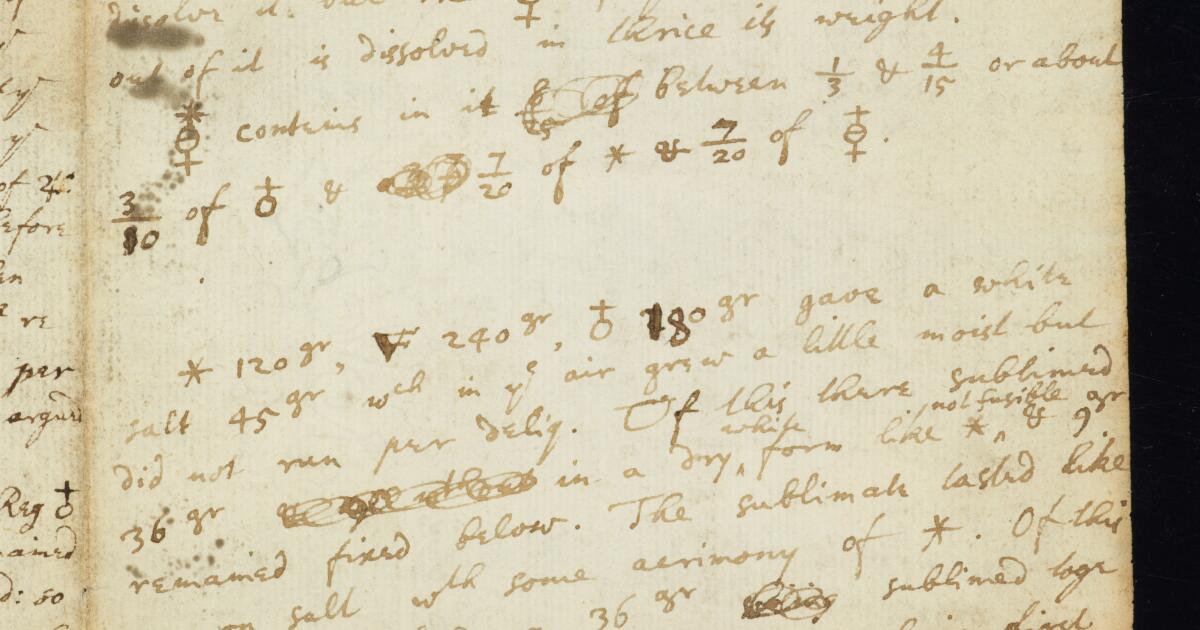 dissolve it but the ♀
out of it is dissolved in thrice its weight.
*♁♀ contains in it between 1/3 & 4/15 or about
3/10 of ♁ & 7/20 of * & 7/20 of ♀.
* 120gr, 🜃 240gr, ♁ 180gr gave a white
salt 45gr wch in ye air grew a little moist but
did not run per deliq. Of this there sublimed
36gr in a dry white form like *, not fusible & 9gr
remained fixed below. The sublimate tasted like
salt wth some acrimony of *. Of this
36gr sublimed
first
of ♃
before
re
per
Reg ♁
ained
d: 50